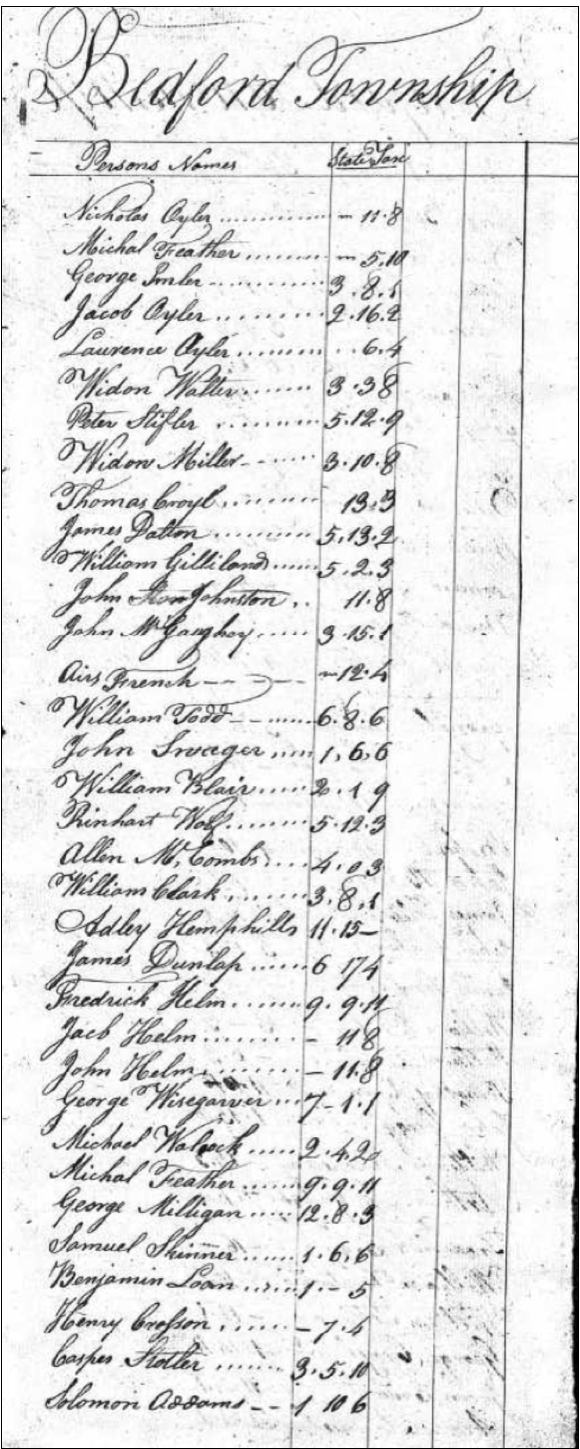 Bedford Township
Persons Names State Tax
Nicholas Oyler ............ — 11.8
Michal Feather ........... — 5.10
George Imler ........... 3.8.1
Jacob Oyler ........... 2.16.2
Laurence Oyler ........... 6.4
Widow Walter ........ 3.3 8
Peter Stifler ........ 5.12.9
Widow Miller ........ 3.10.8
Thomas Croyl ........ 13.3
James Dalton ........ 5.13.2
William Gilliland ..... 5.2.3
John Johnston .. 11.8
John McGaughey ..... 3.15.1
Airs French — — — — 12.4
William Todd — — ..... 6.8.6
John Swager .... 1,6,6
William Blair .... 2.1 9
Rinhart Wolf ........ 5.12.3
Allen Mc,Combs .... 4.0 3
William Clark ........ 3.8.1
Adley Hemphills 11.15—
James Dunlap ...... 6 17 4
Fredrick Helm ...... 9.9.11
Jacb Helm ........ — 11 8
John Helm ........ — 11.8
George Wisegarver ... 7-1.1
Michael Walock ..... 2.4.2
Michal Feather ...... 9.9.11
George Milligan ..... 12.8.3
Samuel Skinner ..... 1.6.6
Benjamin Loan ..... 1.— 5
Henry Crosson ...... — 7.4
Casper Stotler ...... 3.5.10
Solomon Addams — — 1 10 6